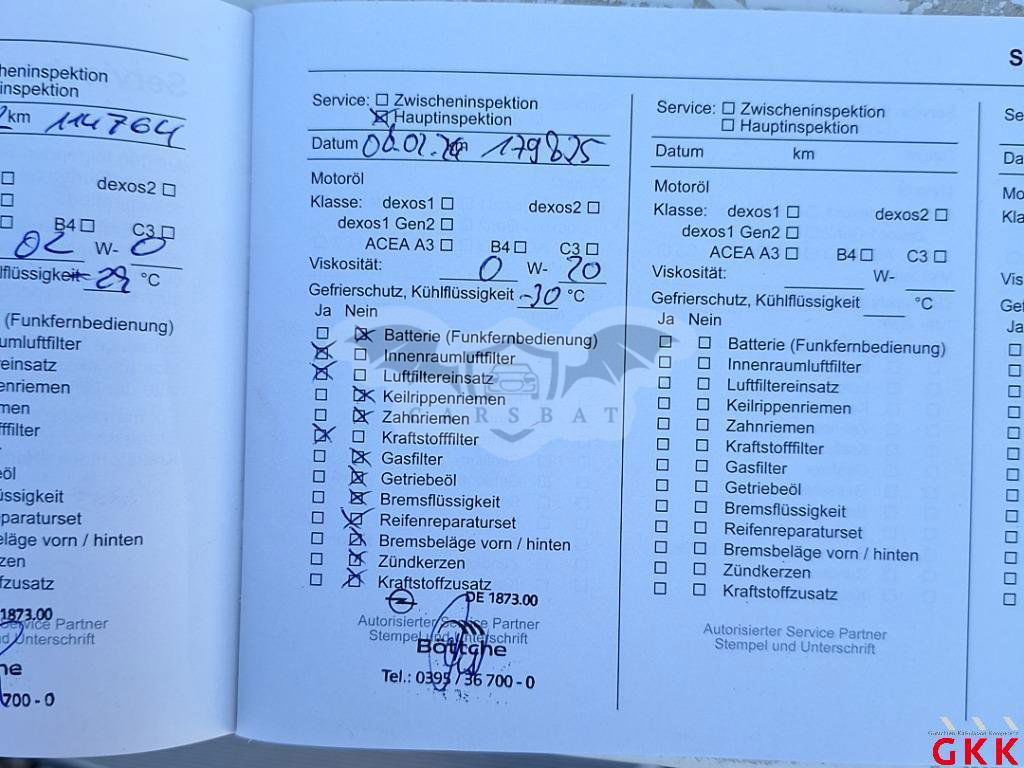 heninspektion
inspektion
km 114764
dexos2
B4 C3
02 W- 0
lflüssigkeit -29 °C
(Funkfernbedienung)
umluftfilter
reinsatz
enriemen
men
fffilter
eöl
üssigkeit
paraturset
eläge vorn / hinten
zen
fzusatz
1873.00
vice Partner
d Unterschrift
he
700 - 0
Service: Zwischeninspektion
Hauptinspektion
Datum km 179825
Motoröl
Klasse: dexos1 dexos2
dexos1 Gen2
ACEA A3 B4 C3
Viskosität: 0 W- 20
Gefrierschutz, Kühlflüssigkeit -30 °C
Ja Nein
Batterie (Funkfernbedienung)
Innenraumluftfilter
Luftfiltereinsatz
Keilrippenriemen
CARSBAT
Zahnriemen
Kraftstofffilter
Gasfilter
Getriebeöl
Bremsflüssigkeit
Reifenreparaturset
Bremsbeläge vorn / hinten
Zündkerzen
Kraftstoffzusatz
DE 1873.00
Autorisierter Service Partner
Stempel und Unterschrift
Böttche
Tel.: 0395 / 36 700 - 0
S
Service: Zwischeninspektion
Hauptinspektion
Datum km
Motoröl
Klasse: dexos1 dexos2
dexos1 Gen2
ACEA A3 B4 C3
Viskosität: W-
Gefrierschutz, Kühlflüssigkeit °C
Ja Nein
Batterie (Funkfernbedienung)
Innenraumluftfilter
Luftfiltereinsatz
Keilrippenriemen
Zahnriemen
Kraftstofffilter
Gasfilter
Getriebeöl
Bremsflüssigkeit
Reifenreparaturset
Bremsbeläge vorn / hinten
Zündkerzen
Kraftstoffzusatz
Autorisierter Service Partner
Stempel und Unterschrift
Se
Da
Mo
Kla
Vis
Gef
Ja
GKK